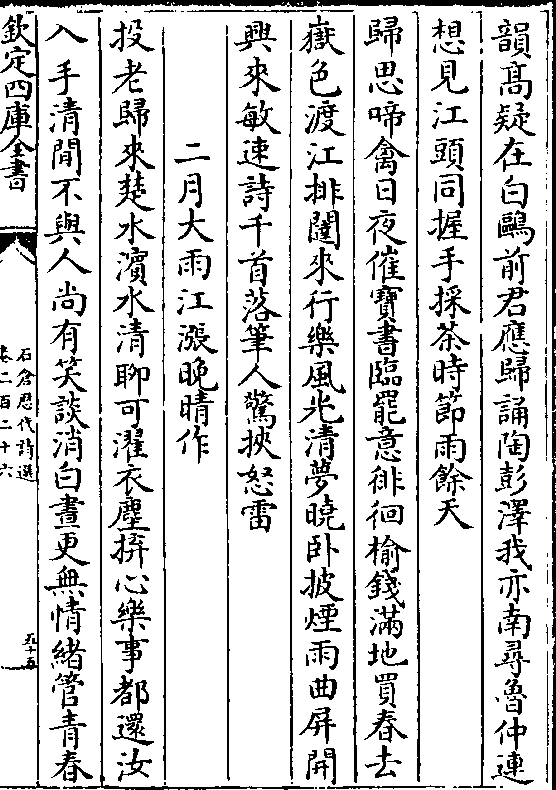 韻髙疑在白鷗前君應歸誦陶彭澤我亦南尋魯仲連
想見江頭同握手採茶時節雨餘天
歸思啼禽日夜催寶書臨罷意徘徊榆錢滿地買春去
嶽色渡江排闥來行樂風光清夢曉臥披煙雨曲屏開
興來敏速詩千首落筆人驚挾怒雷
二月大雨江漲晚晴作
投老歸來楚水濵水清聊可濯衣塵拚心樂事都還汝
入手清閒不與人尚有笑談消白晝更無情緒管青春
欽定四庫全書
石倉歴代詩選
卷二百二十六
五十五